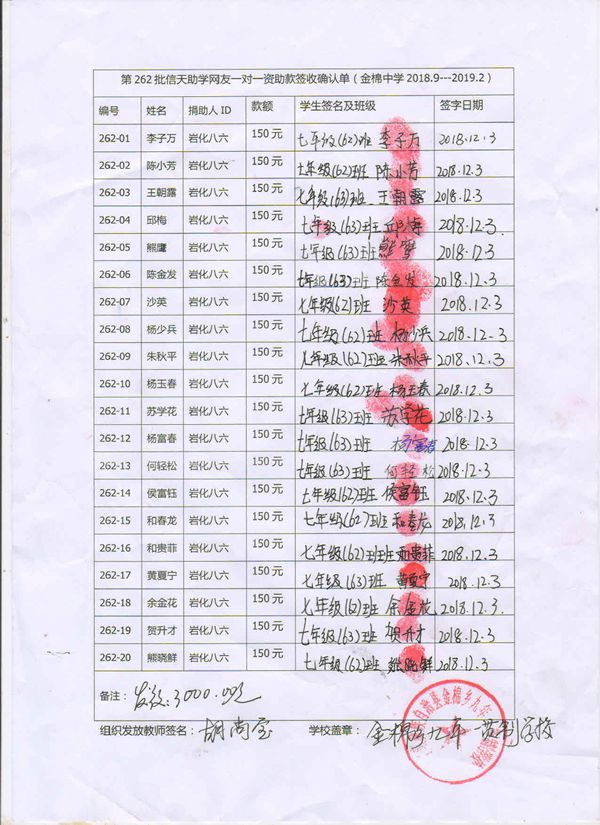 第262批信天助学网友一对一资助款签收确认单（金棉中学2018.9---2019.2）
编号 姓名 捐助人ID 款额 学生签名及班级 签字日期
262-01 李子万 岩化八六 150元 七年级(62)班 李子万 2018.12.3
262-02 陈小芳 岩化八六 150元 七年级(62)班 陈小芳 2018.12.3
262-03 王朝露 岩化八六 150元 七年级(63)班 王朝露 2018.12.3
262-04 邱梅 岩化八六 150元 七年级(63)班 邱梅 2018.12.3.
262-05 熊鹰 岩化八六 150元 七年级(63)班 熊鹰 2018.12.3
262-06 陈金发 岩化八六 150元 七年级(63)班 陈金发 2018.12.3
262-07 沙英 岩化八六 150元 七年级(62)班 沙英 2018.12.3
262-08 杨少兵 岩化八六 150元 七年级(62)班 杨少兵 2018.12.3
262-09 朱秋平 岩化八六 150元 七年级(62)班 朱秋平 2018.12.3
262-10 杨玉春 岩化八六 150元 七年级(62)班 杨玉春 2018.12.3
262-11 苏学花 岩化八六 150元 七年级(63)班 苏学花 2018.12.3
262-12 杨富春 岩化八六 150元 七年级(63)班 杨富春 2018.12.3
262-13 何轻松 岩化八六 150元 七年级(63)班 何轻松 2018.12.3
262-14 侯富钰 岩化八六 150元 七年级(62)班 侯富钰 2018.12.3
262-15 和春龙 岩化八六 150元 七年级(62)班 和春龙 2018.12.3
262-16 和贵菲 岩化八六 150元 七年级(62)班班 和贵菲 2018.12.3
262-17 黄夏宁 岩化八六 150元 七年级(63)班 黄夏宁 2018.12.3
262-18 余金花 岩化八六 150元 七年级(62)班 余金花 2018.12.3.
262-19 贺升才 岩化八六 150元 七年级(63)班 贺升才 2018.12.3
262-20 熊晓鲜 岩化八六 150元 七年级(62)班 熊晓鲜 2018.12.3
备注： 发放:3000.00元
组织发放教师签名： 胡尚宝 学校盖章： 金棉乡九年一贯制学校